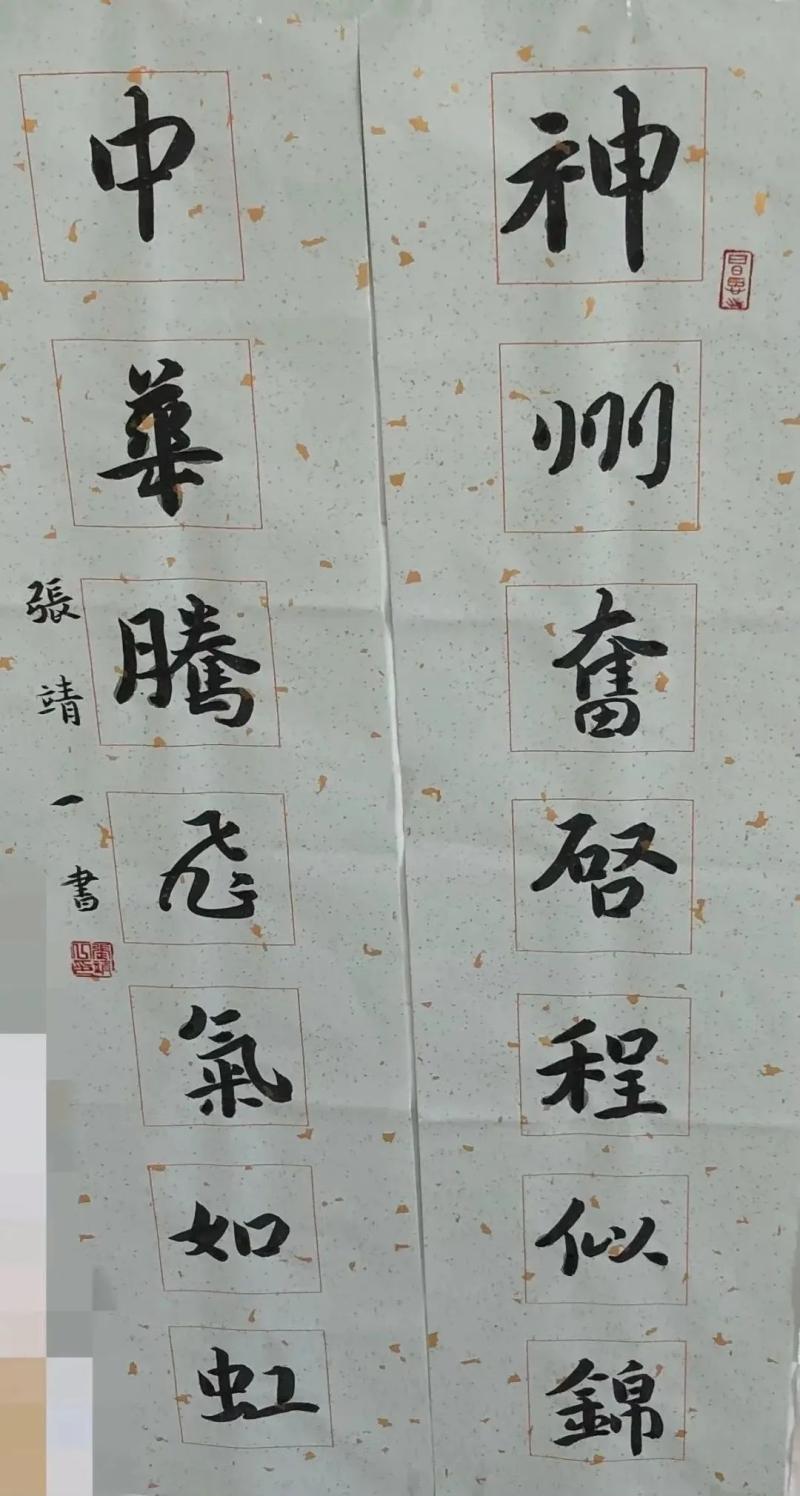 神州奮啓程似錦
中華騰飛氣如虹
張靖一書